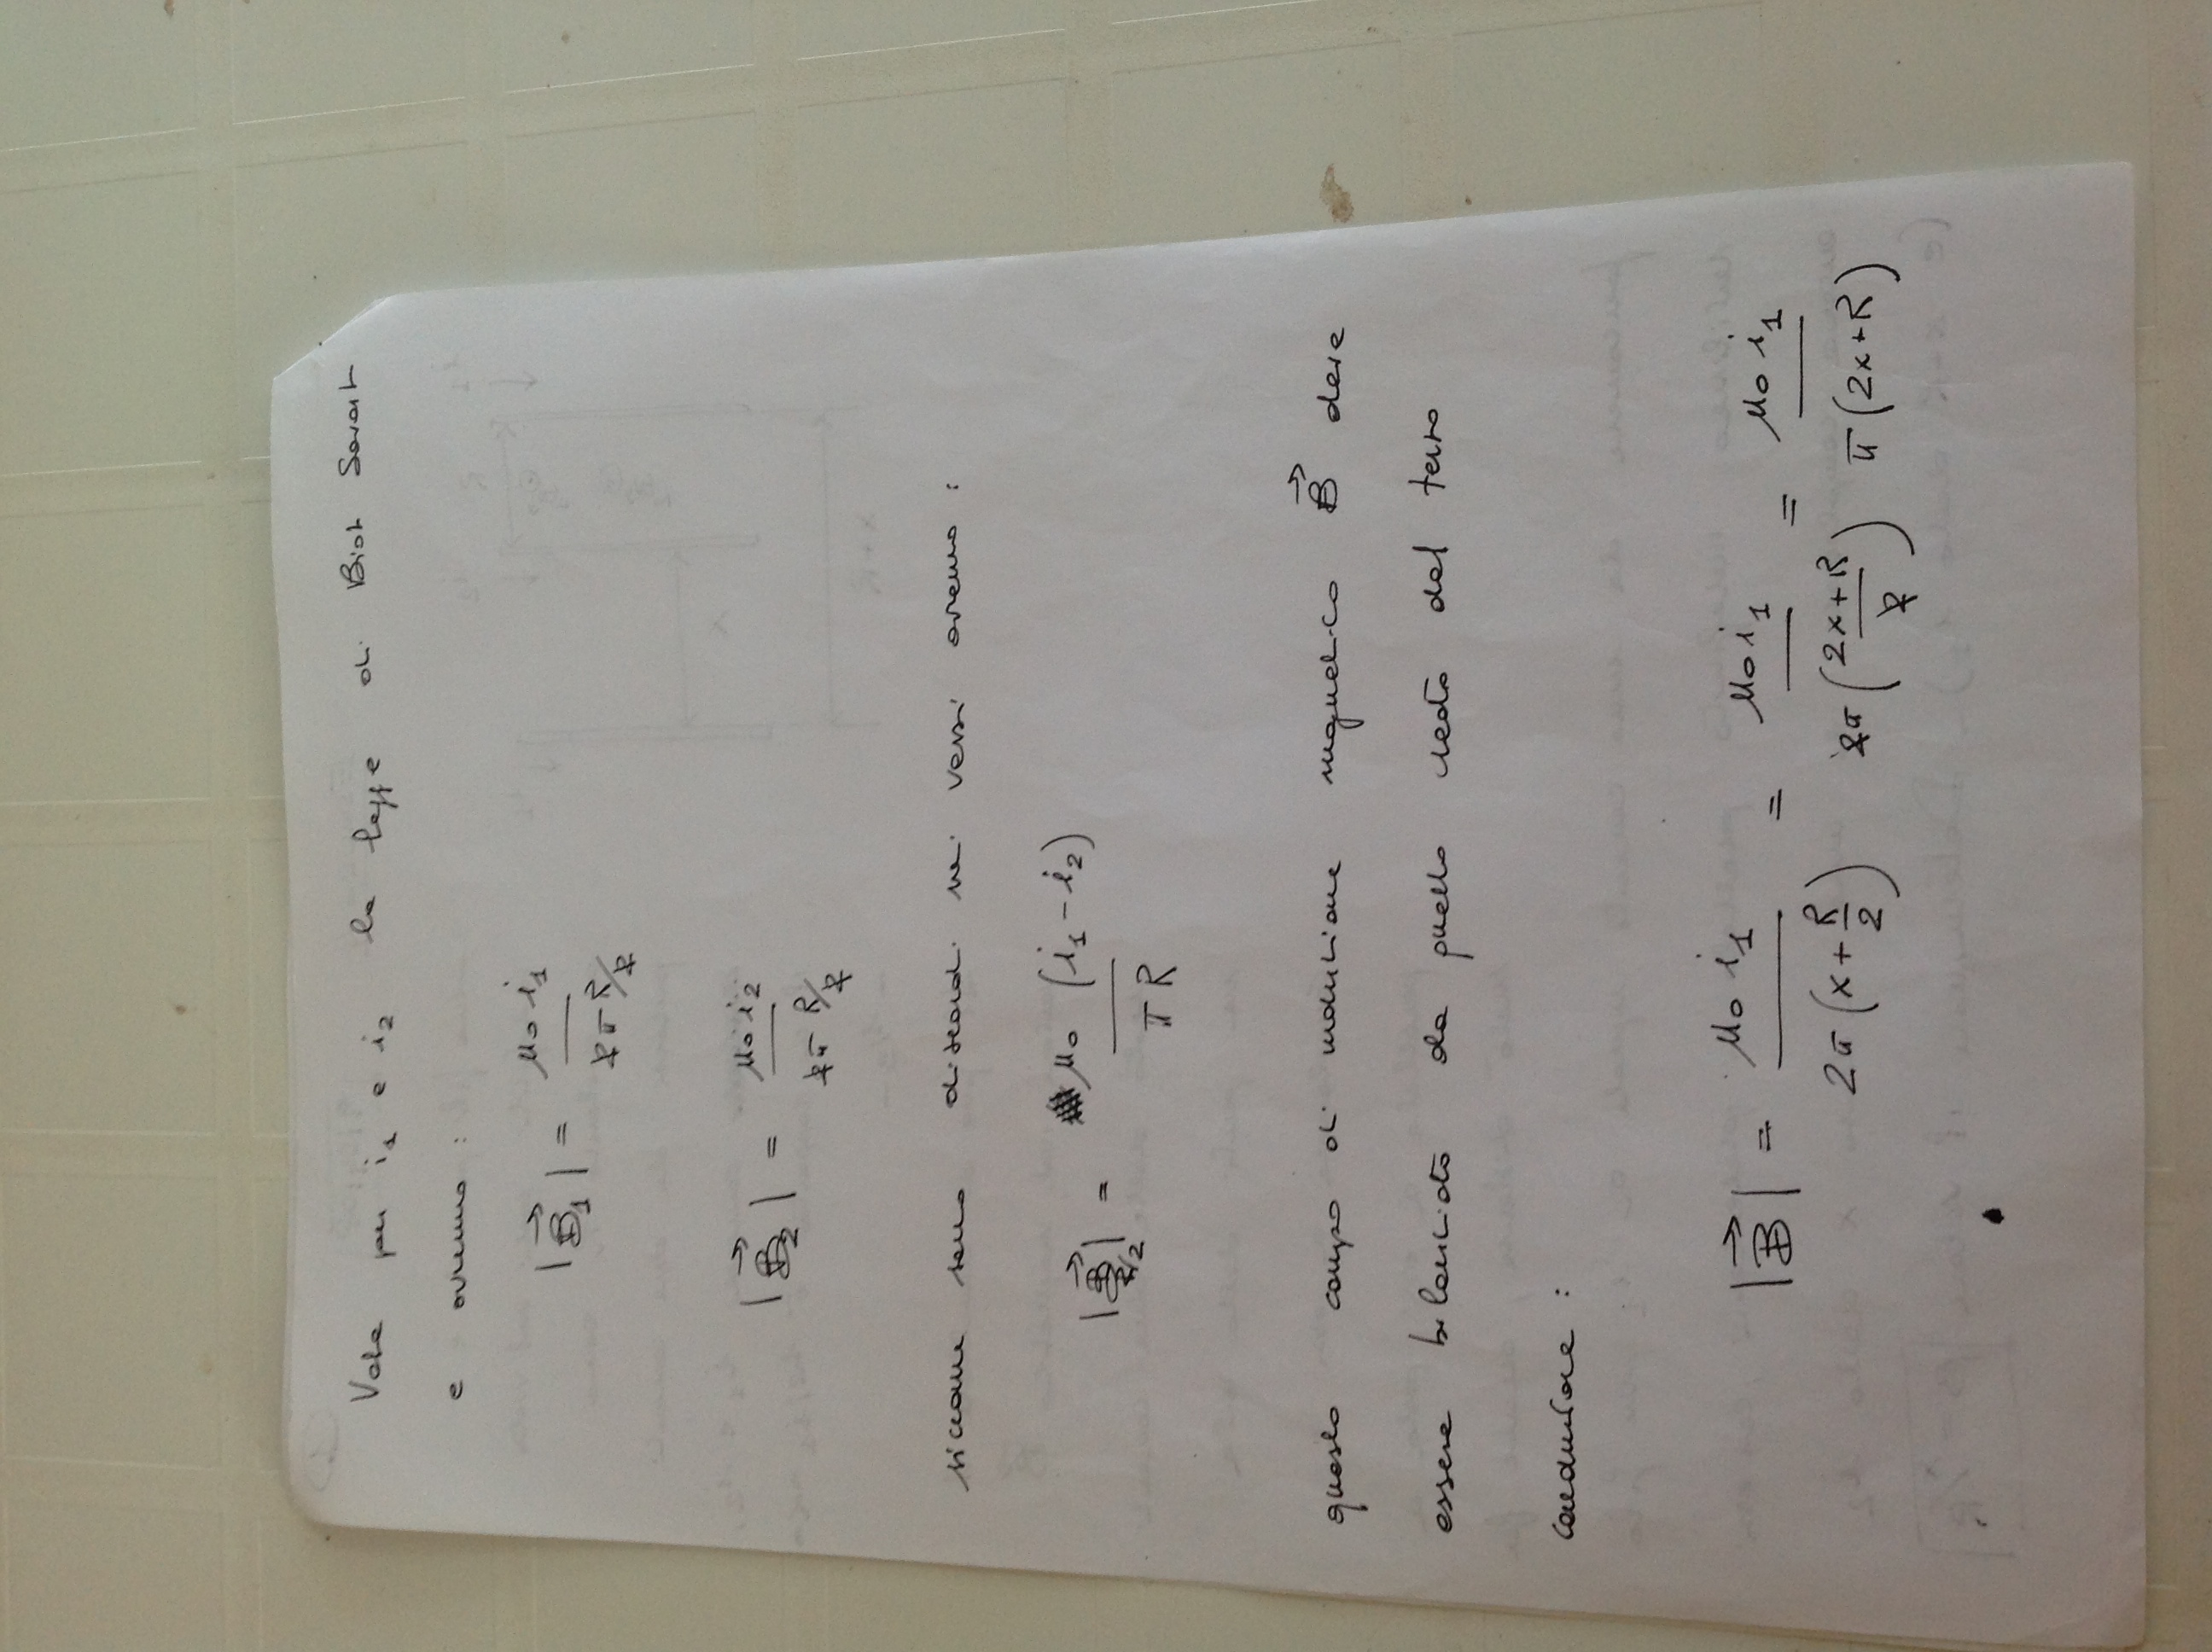 Vale per i₁ e i₂ la legge di Biot Savart
e avremo :
|B⃗₁| = μ₀ i₁ / 2π R/2
|B⃗₂| = μ₀ i₂ / 2π R/2
siccome sono discordi nei versi avremo :
|B⃗ R/2| = μ₀ (i₁ - i₂) / π R
questo campo di induzione magnetico B⃗ deve
essere bilanciato da quello creato dal terzo
conduttore :
|B⃗| = μ₀ i₁ / 2π (x + R/2) = μ₀ i₁ / 2π ((2x + R)/2) = μ₀ i₁ / π (2x + R)